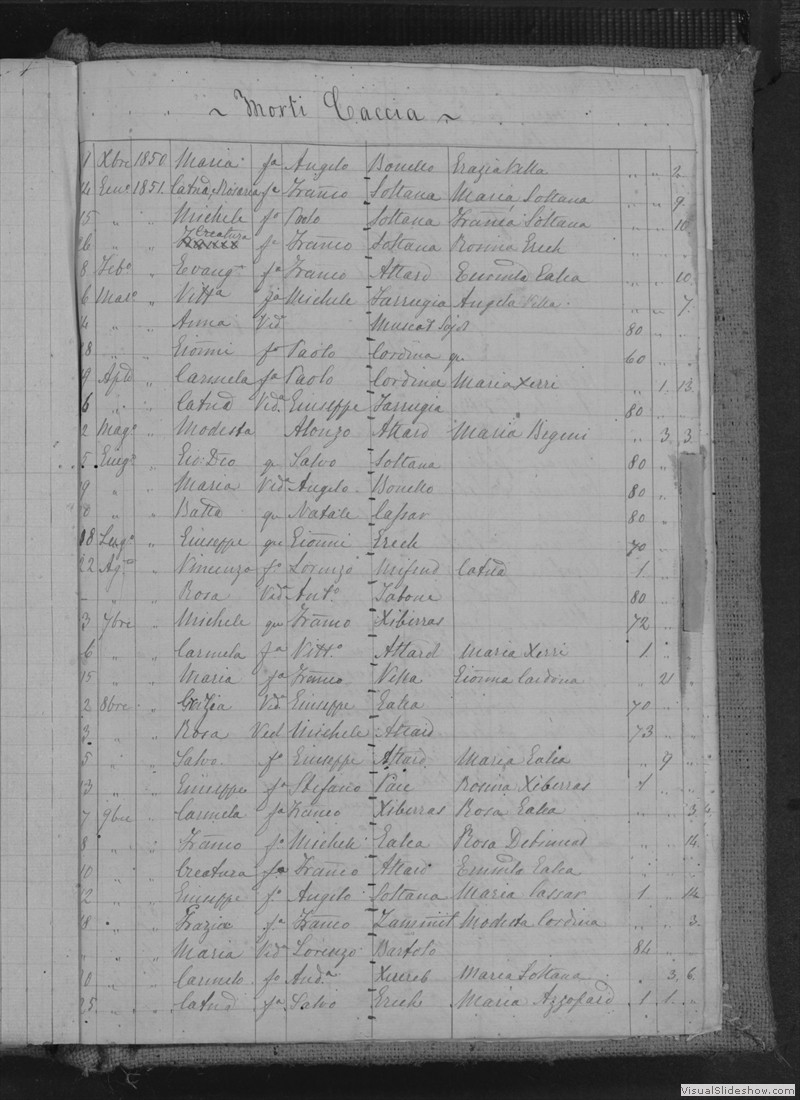 ~ Morti Caccia ~
1 Xbre 1850 Maria fa Angelo Bonello Grazia Vella " " 2
14 Genº 1851 Catnd, Rosaria fa Franco Soltana Maria Soltana " " 9
15 " " Michele fº Paolo Soltana Franca Soltana " " 10
16 " " Creatura fº Franco Soltana Rosina Grech
8 Febº " Evangta fa Franco Attard Galea " " 10
6 Marº " Vitta fa Michele Farrugia Angela Vella " " 7
14 " " Anna Vid Muscat 80 " "
18 " " Gionni fº Paolo Cordina qu. 60 " "
9 Aple " Carmela fa Paolo Cordina Maria Xerri " 1 13
6 " " Catnd Vida Giuseppe Farrugia 80 " "
2 Magº " Modesta Alonzo Attard Maria Begeni " 3 3
5 Giugº " Gio: Dio qu Salvo Soltana 80 "
9 " " Maria Vida Angelo Bonello 80 "
" " Batta qu Natale Cassar 80 "
18 Lugº " Giuseppe qu Gionni Grech 70 "
22 Agto " Vincenzo fº Lorenzo Mifsud Catnd 1 "
" " Rosa Vida Antº Tabone 80 "
3 7bre " Michele qu Franco Xiberras 72 "
6 " " Carmela fa Vittº Attard Maria Xerri 1 "
15 " " Maria fa Franco Vella Gionna Cardona " 21
2 8bre " Grazia Vida Giuseppe Galea 70 "
3 " " Rosa Vid Michele Attard 73 "
5 " " Salvo fº Giuseppe Attard Maria Galea " 9 "
13 " " Giuseppe fº Stefano Pace Rosina Xiberras 1 " "
7 9bre " Carmela fa Franco Xiberras Rosa Galea " " 3
8 " " Franco fº Michele Galea Rosa " " 14
10 " " Creatura fa Franco Attard Galea " " "
12 " " Giuseppe fº Angelo Soltana Maria Cassar 1 " 14
18 " " Grazia fa Franco Zammit Modesta Cordina " " 3
" " " Maria Vida Lorenzo Bartolo 84 " "
20 " " Carmelo fº Anda Xerreb Maria Soltana " 3 6
25 " " Catnd fa Salvo Grech Maria Azzopard 1 1 "
VisualSlideshow.com